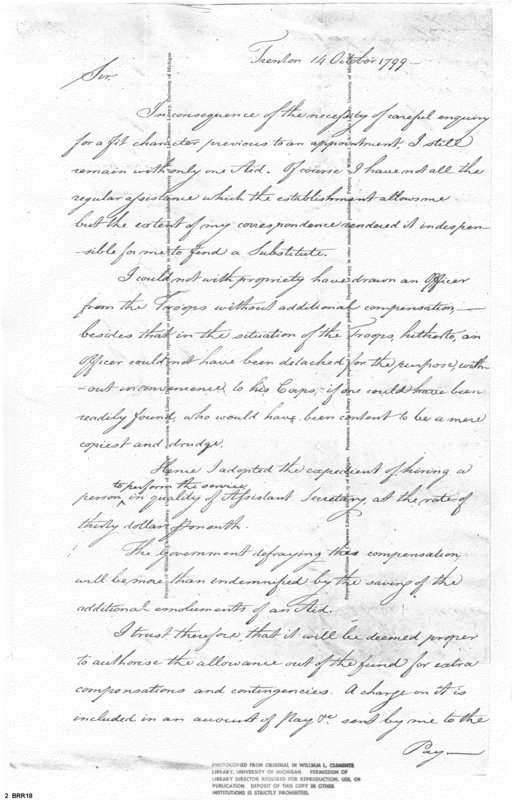 Trenton 14 October 1799 –
Sir.
In consequence of the necessity of careful enquiry
for a fit character previous to an appointment, I still
remain with only one Aid. Of course I have not all the
regular assistance which the establishment allows me
but the extent of my correspondence rendered it indispen-
-sible for me to find a Substitute.
I could not with propriety have drawn an Officer
from the Troops without additional compensation —
besides that in the situation of the Troops, hitherto, an
Officer could not have been detached for the purpose, with-
-out inconvenience to his Corps, – if one could have been
readily found, who would have been content to be a mere
copiest and drudge.
Hence I adopted the expedient of hiring a
to perform the service
person, in quality of Assistant Secretary, at the rate of
thirty dollars month.
The Government defraying this compensation
will be more than indemnified by the saving of the
additional emoluments of an Aid.
I trust therefore, that it will be deemed proper
to authorise the allowance out of the fund for extra
compensations and contingencies. A charge on it is
included in an account of Pay &c sent by me to the
Pay —
PHOTOCOPIED FROM ORIGINAL IN WILLIAM L. CLEMENTS
LIBRARY, UNIVERSITY OF MICHIGAN. PERMISSION OF
LIBRARY DIRECTOR REQUIRED FOR REPRODUCTION, USE, OR
PUBLICATION. DEPOSIT OF THIS COPY IN OTHER
INSTITUTIONS IS STRICTLY PROHIBITED.
2 BRR18